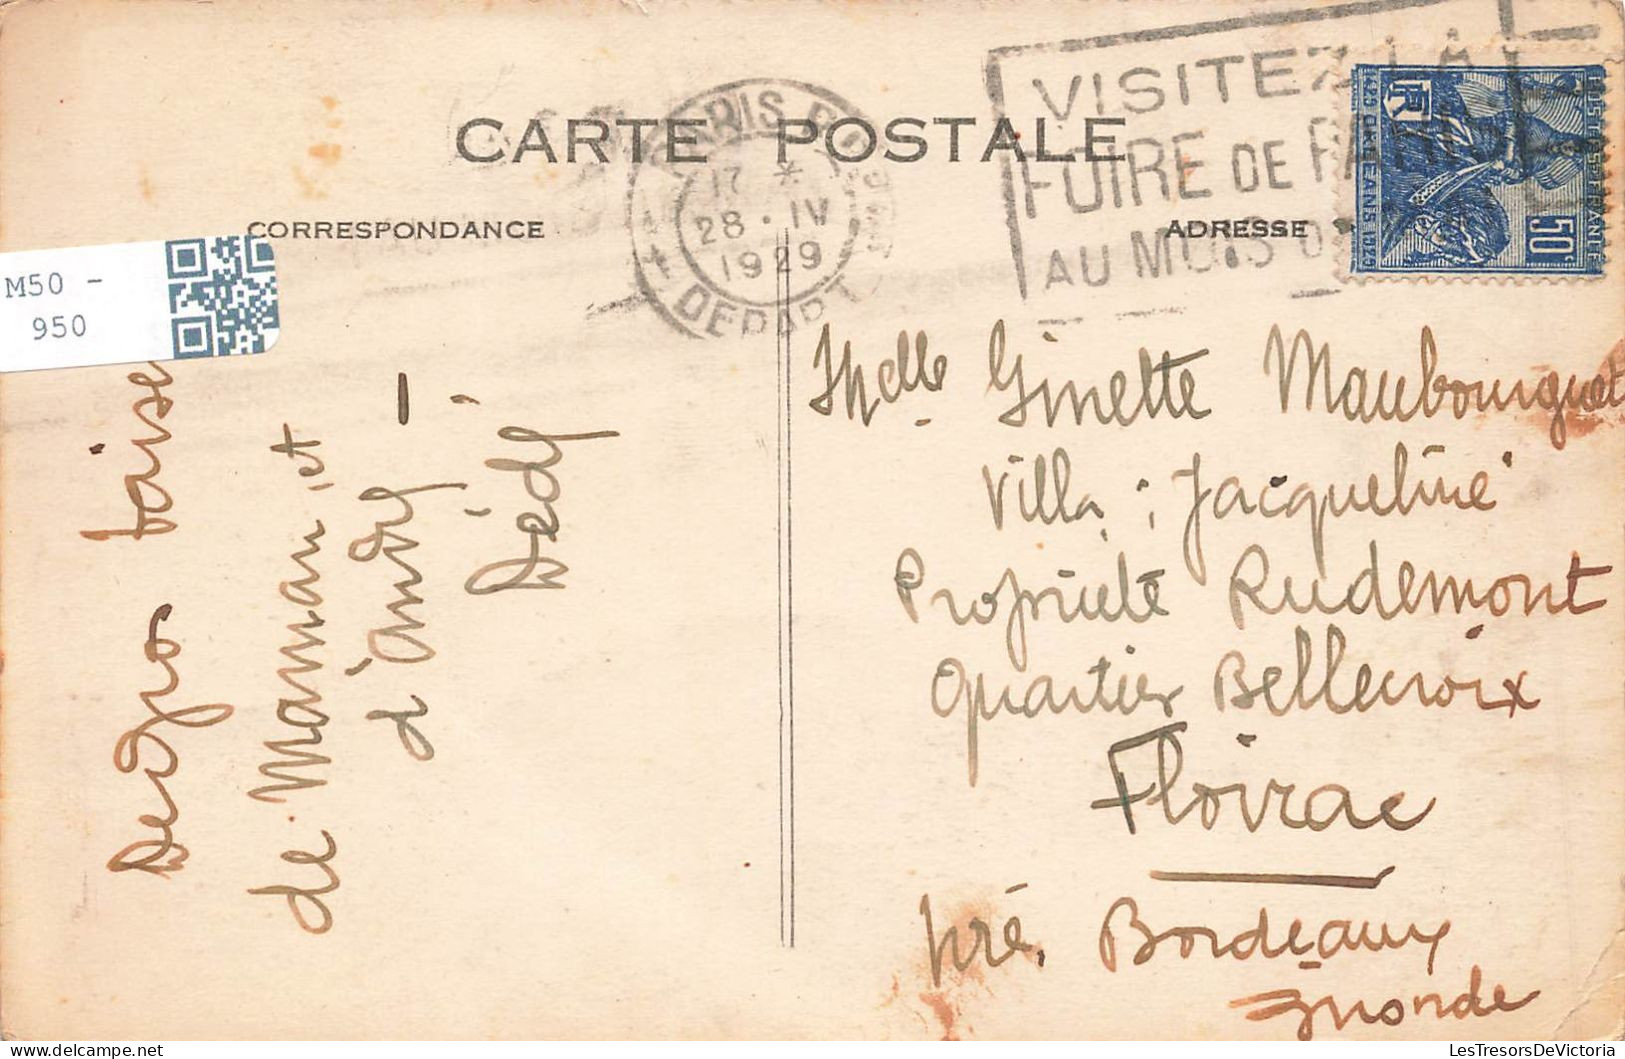 CARTE POSTALE
CORRESPONDANCE
ADRESSE
PARIS
17 *
28 · IV
1929
DEPART
VISITEZ LA
FOIRE DE PARIS
AU MOIS DE
RF
POSTES FRANCE
50c
M50 -
950
baiser
de Maman, et
d'André -
Dédé
Melle Ginette Maubourguet
Villa : Jacqueline
Propriété Rudemont
Quartier Bellecroix
Floirac
pré. Bordeaux
Gironde
LesTresorsDeVictoria